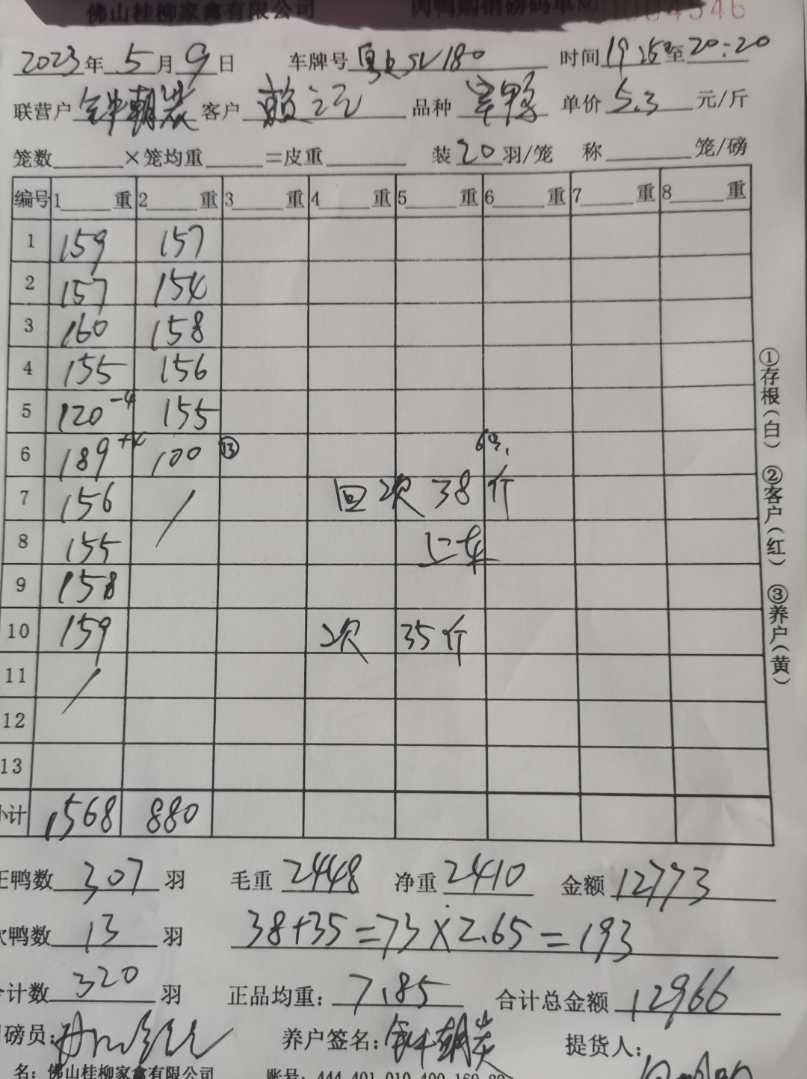 佛山桂柳家禽有限公司 肉鸭购销磅码单
2023年 5月 9日 车牌号 时间 19:25至20:20
联营户 钟朝炭 客户 品种 单价 5.3 元/斤
笼数 ×笼均重 =皮重 装 20 羽/笼 称 笼/磅
编号 1 重 2 重 3 重 4 重 5 重 6 重 7 重 8 重
1 159 157
2 157 154
3 160 158
4 155 156
5 120-4 155
6 189+4 100 ⑬
7 156 / 回次 38斤
8 155 上车
9 158
10 159 次 35斤
11 /
12
13
小计 1568 880
正鸭数 307 羽 毛重 2448 净重 2410 金额 12773
次鸭数 13 羽 38+35=73×2.65=193
合计数 320 羽 正品均重: 7.85 合计总金额 12966
司磅员: 养户签名: 钟朝炭 提货人:
名: 佛山桂柳家禽有限公司 账号:
①存根(白) ②客户(红) ③养户(黄)